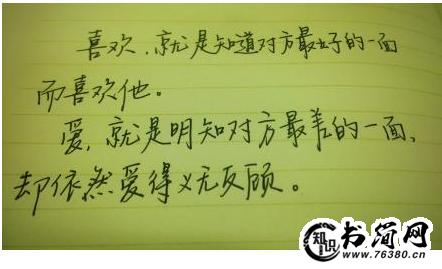 喜欢，就是知道对方最好的一面
而喜欢他。
爱，就是明知对方最差的一面，
却依然爱得义无反顾。
知识 书简网
www.76380.cn